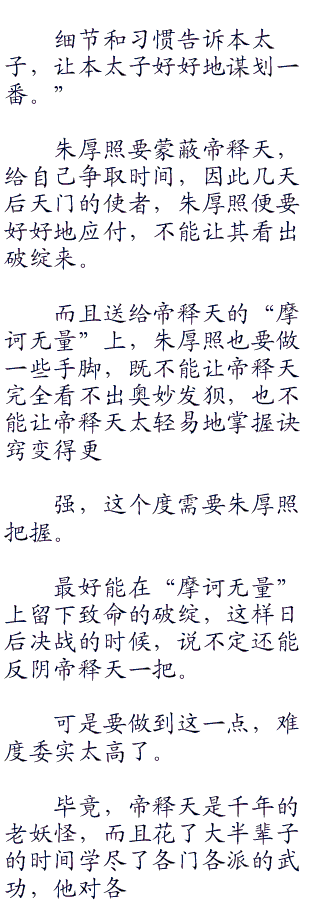 细节和习惯告诉本太
子，让本太子好好地谋划一
番。”
朱厚照要蒙蔽帝释天，
给自己争取时间，因此几天
后天门的使者，朱厚照便要
好好地应付，不能让其看出
破绽来。
而且送给帝释天的“摩
诃无量”上，朱厚照也要做
一些手脚，既不能让帝释天
完全看不出奥妙发狈，也不
能让帝释天太轻易地掌握诀
窍变得更
强，这个度需要朱厚照
把握。
最好能在“摩诃无量”
上留下致命的破绽，这样日
后决战的时候，说不定还能
反阴帝释天一把。
可是要做到这一点，难
度委实太高了。
毕竟，帝释天是千年的
老妖怪，而且花了大半辈子
的时间学尽了各门各派的武
功，他对各